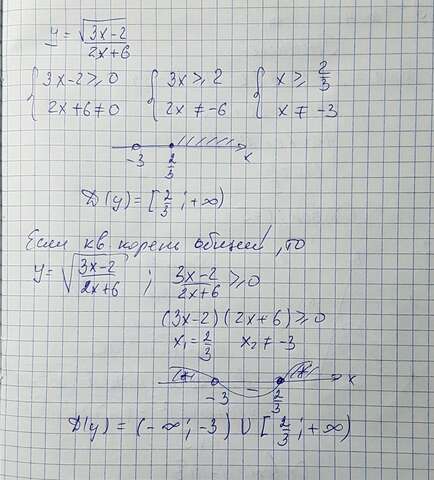 y = √(3x-2) / (2x+6)
{ 3x-2 ≥ 0 { 3x ≥ 2 { x ≥ 2/3
{ 2x+6 ≠ 0 { 2x ≠ -6 { x ≠ -3
-3 2/3 x
D(y) = [2/3; +∞)
Если кв. корень общий, то
y = √((3x-2)/(2x+6)) ; (3x-2)/(2x+6) ≥ 0
(3x-2)(2x+6) ≥ 0
x₁ = 2/3 x₂ ≠ -3
(+) - (+) x
-3 2/3
D(y) = (-∞; -3) U [2/3; +∞)